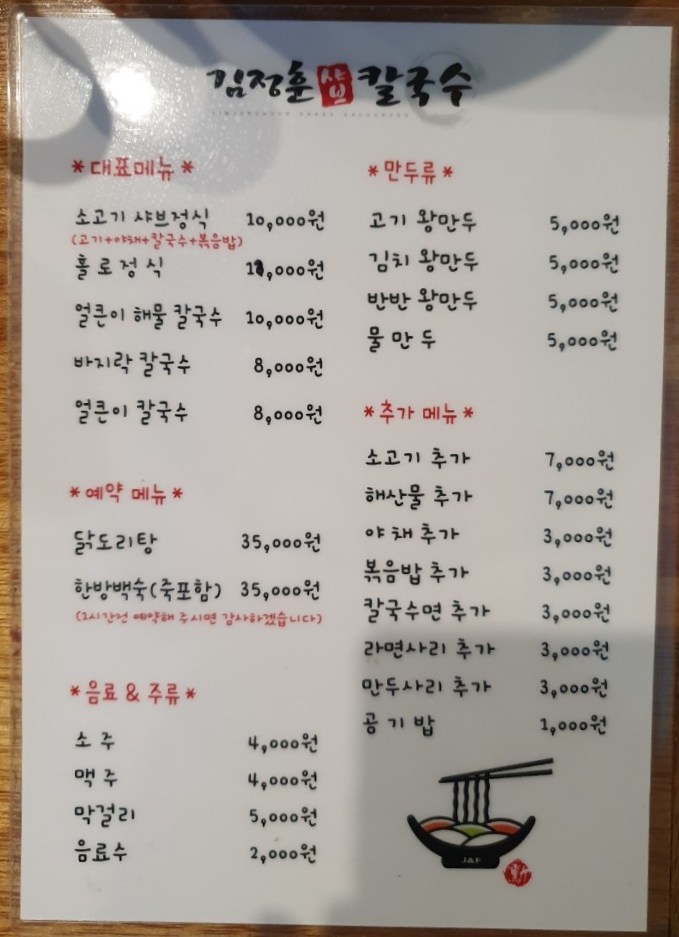 김정훈 샵 칼국수
*대표메뉴*
소고기 샤브정식 10,000원
(고기+야채+칼국수+볶음밥)
홀로정식
얼큰이 해물 칼국수 10,000원
바지락 칼국수 8,000원
얼큰이 칼국수 8,000원
*예약 메뉴*
닭도리탕 35,000원
한방백숙(죽포함) 35,000원
(1시간전 예약해 주시면 감사하겠습니다)
*음료 & 주류*
소주 4,000원
맥주 4,000원
막걸리 5,000원
음료수 2,000원
*만두류*
고기 왕만두 5,000원
김치 왕만두 5,000원
반반 왕만두 5,000원
물만두 5,000원
*추가 메뉴*
소고기 추가 7,000원
해산물 추가 7,000원
야채 추가 3,000원
볶음밥 추가 3,000원
칼국수면 추가 3,000원
라면사리 추가 3,000원
만두사리 추가 3,000원
공기밥 1,000원
J&F